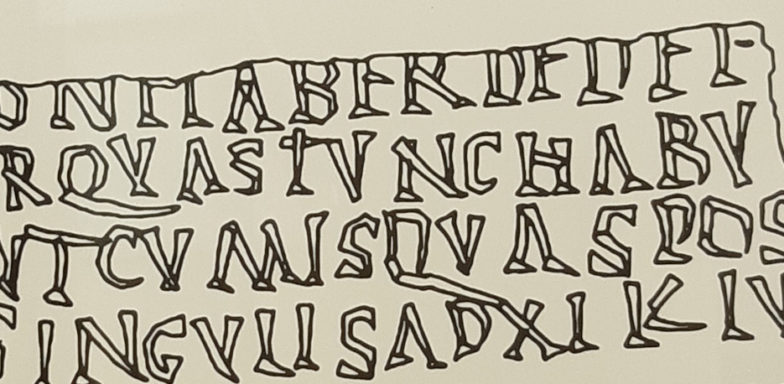 ONTIABERDEDE
RQVASTVNCHABV
NTCVMISQVASPOS
SINGVLISADXIKIV